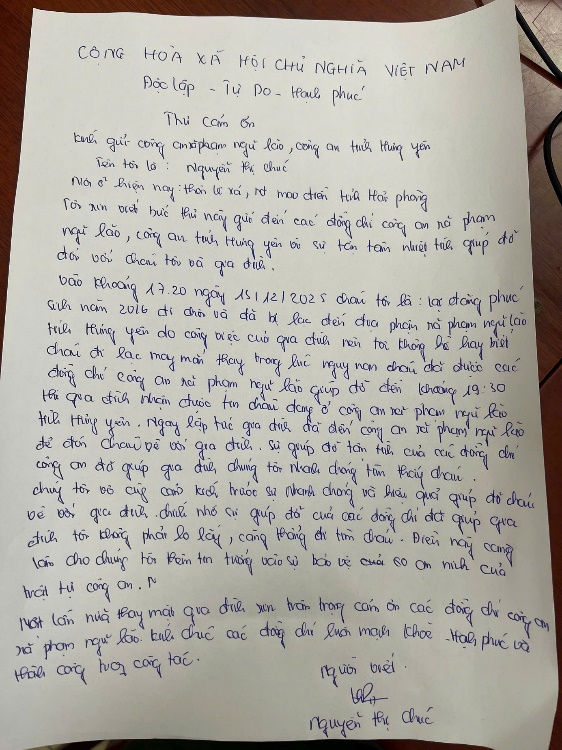 CỘNG HOÀ XÃ HỘI CHỦ NGHĨA VIỆT NAM
Độc lập - Tự Do - Hạnh phúc
Thư cảm ơn
Kính gửi công an xã phạm ngũ lão, công an tỉnh Hưng yên
Tên tôi là : Nguyễn Thị Chúc
Nơi ở hiện nay: thôn lê xá, mao điền tỉnh Hải phòng
Tôi xin viết bức thư này gửi đến các đồng chí công an xã phạm
ngũ lão, công an tỉnh Hưng yên vì sự tận tâm nhiệt tình giúp đỡ
đối với cháu tôi và gia đình.
vào khoảng 17.20 ngày 15/12/2025 cháu tôi là : đăng phúc
sinh năm 2016 đi chơi và đã bị lạc đến địa phận xã phạm ngũ lão
tỉnh Hưng yên do công việc của gia đình nên tôi không hề hay biết
cháu đi lạc may mắn thay trong lúc nguy nan cháu đã được các
đồng chí công an xã phạm ngũ lão giúp đỡ đến khoảng 19:30
thì gia đình nhận được tin cháu đang ở công an xã phạm ngũ lão
tỉnh Hưng yên. Ngay lập tức gia đình đã đến công an xã phạm ngũ lão
để đón cháu về với gia đình. sự giúp đỡ tận tình của các đồng chí
công an đã giúp gia đình chúng tôi nhanh chóng tìm thấy cháu.
chúng tôi vô cùng cảm kích trước sự nhanh chóng và hiệu quả giúp đỡ cháu
về với gia đình. chính nhờ sự giúp đỡ của các đồng chí đã giúp gia
đình tôi không phải lo lắng, căng thẳng đi tìm cháu. Điều này càng
làm cho chúng tôi thêm tin tưởng vào sự bảo vệ an ninh của
trật tự công an.
Một lần nữa thay mặt gia đình xin trân trọng cảm ơn các đồng chí công an
xã phạm ngũ lão. kính chúc các đồng chí luôn mạnh khoẻ - Hạnh phúc và
thành công trong công tác.
Người viết.
Nguyễn Thị Chúc